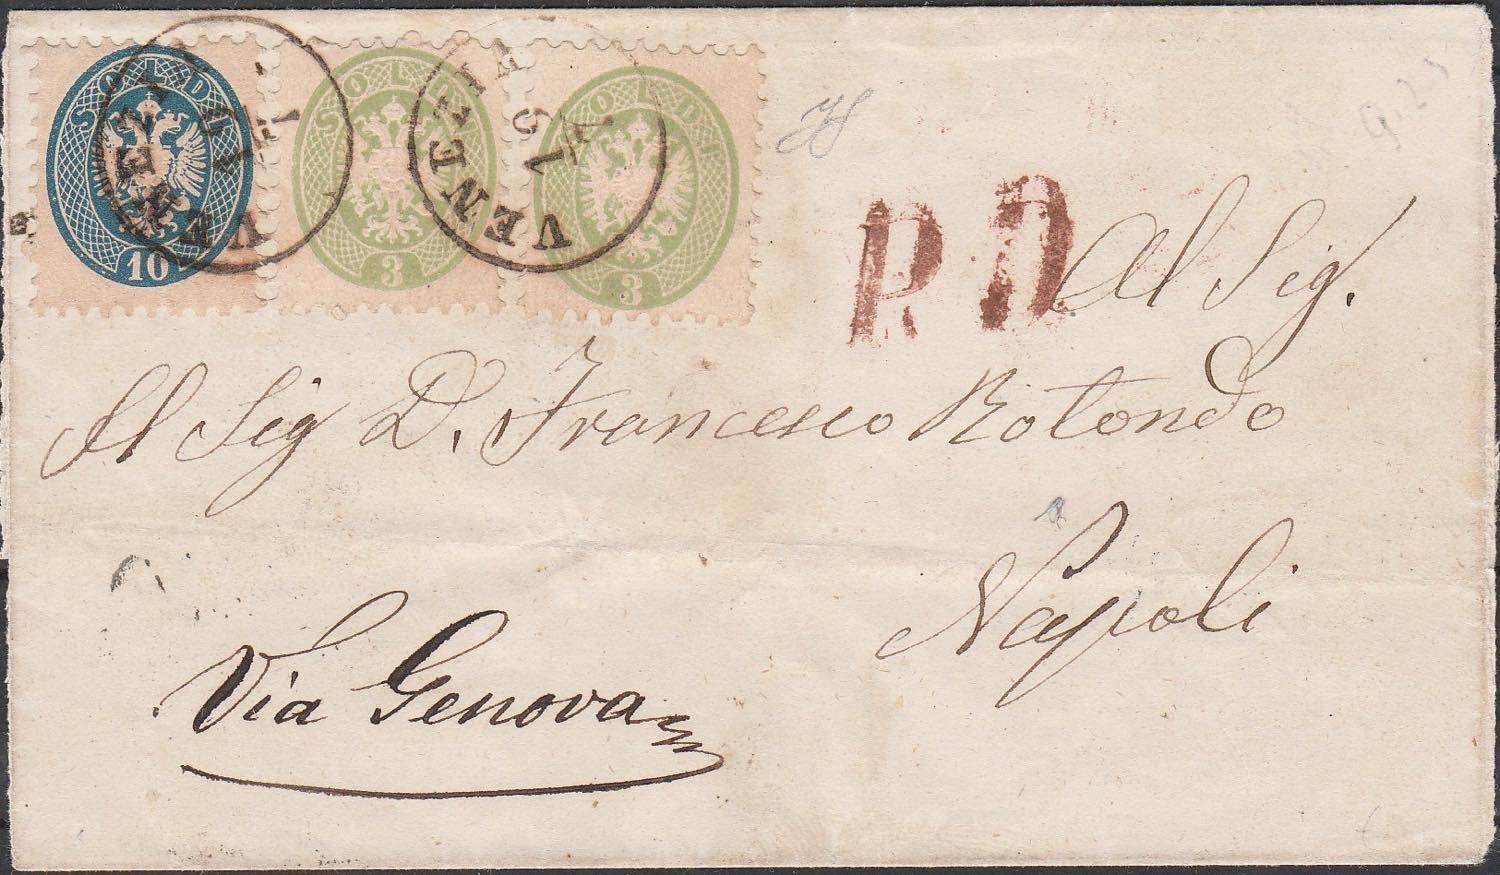 SOLDI SOLDI SOLDI
10 3 3
VENEZIA VENEZIA
19
P.D.
Al Sig.
Al Sig D. Francesco Rotondo
Napoli
Via Genova